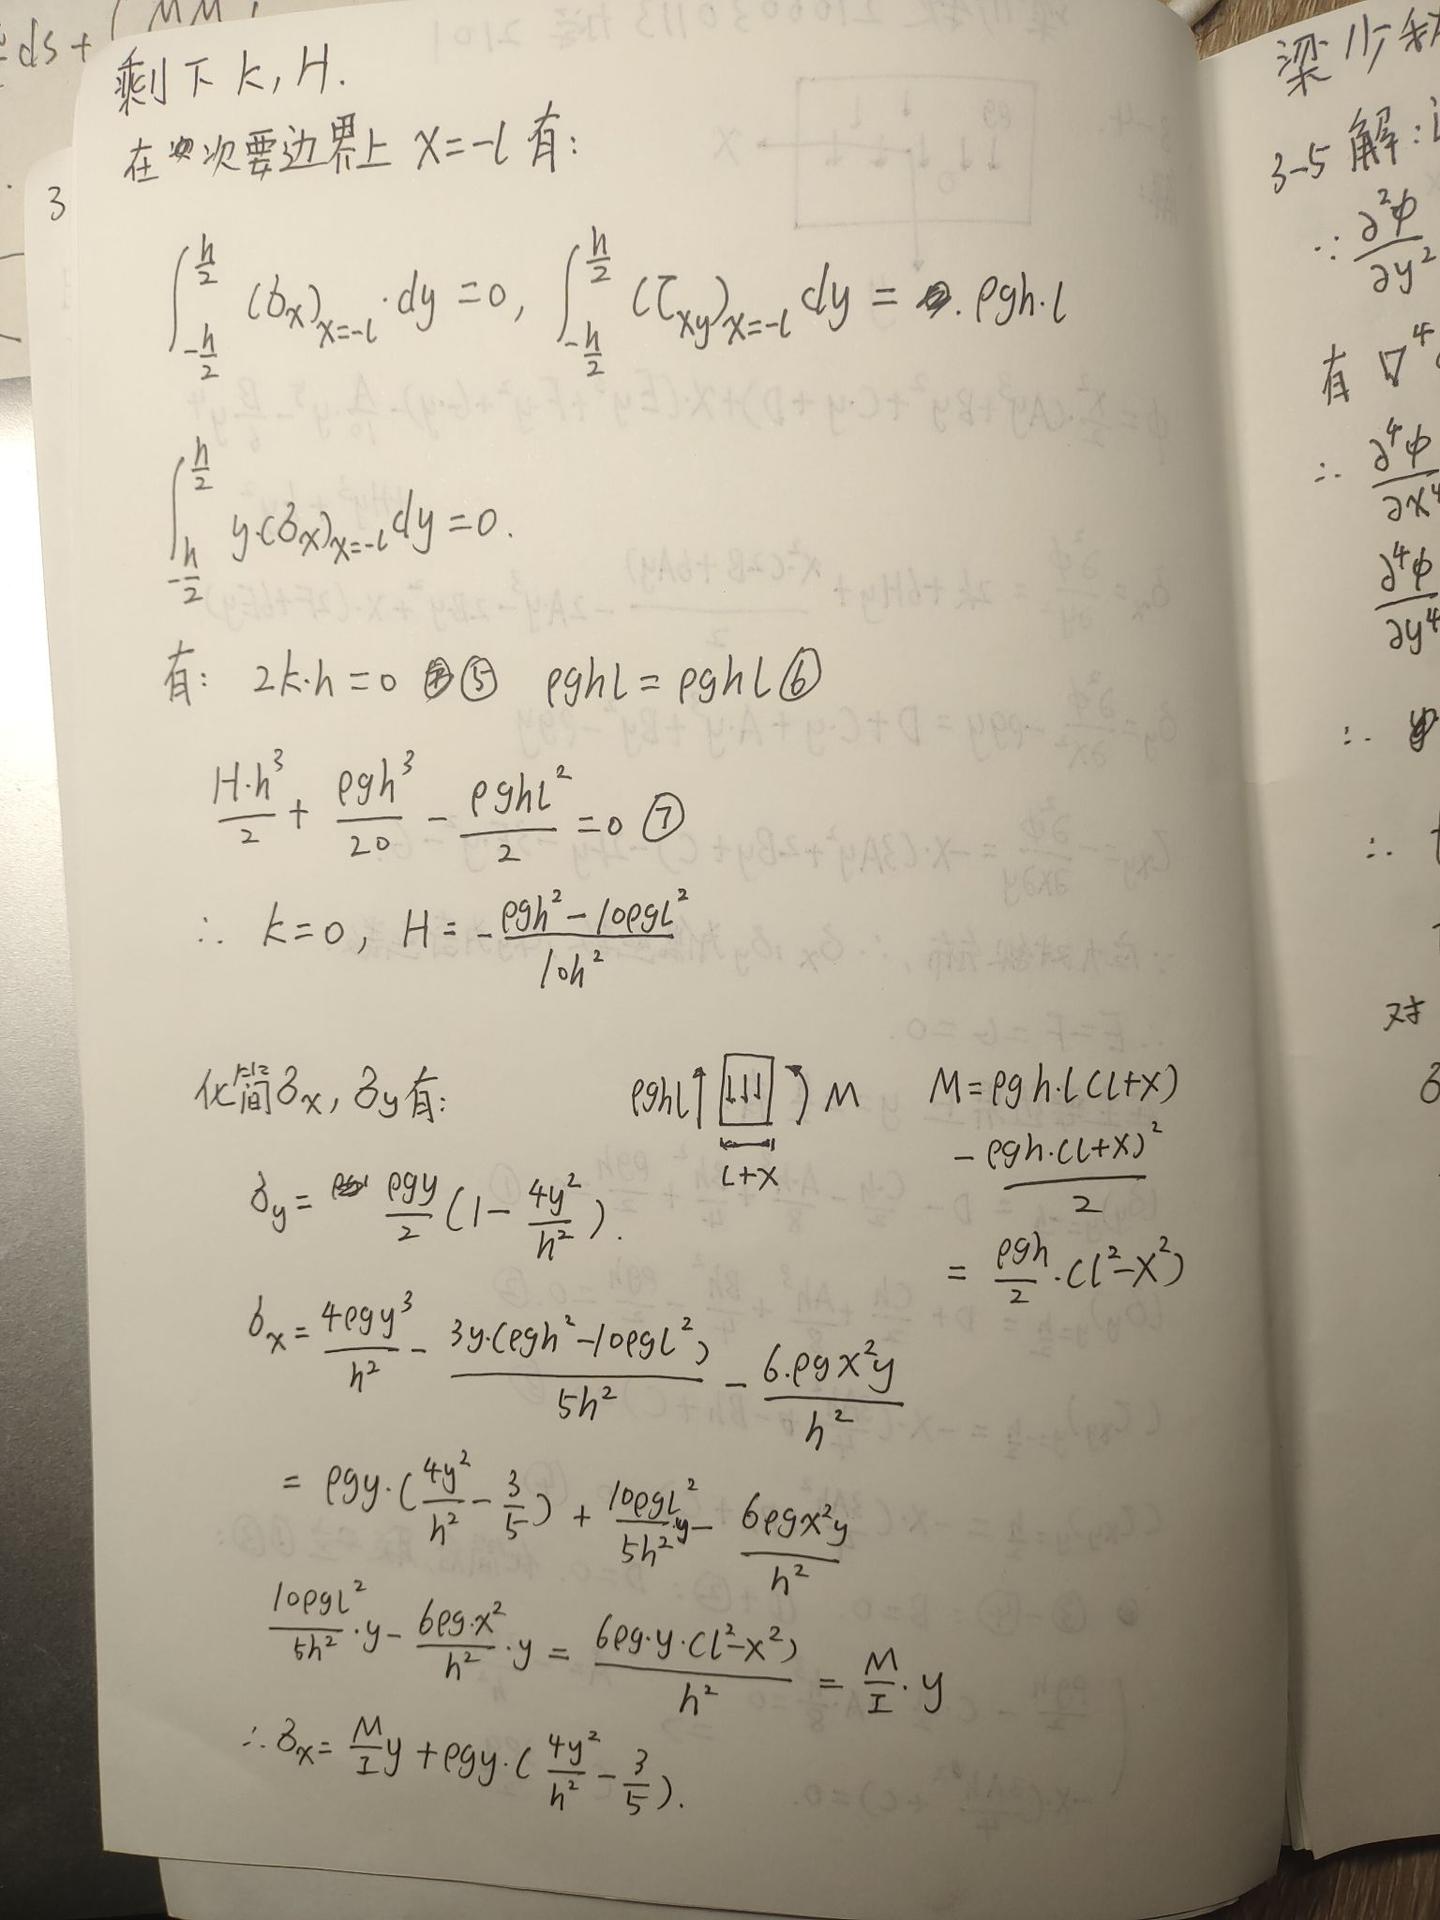 剩下 K, H.
在次要边界上 X=-l 有:
∫_{-h/2}^{h/2} (σx)_{x=-l}·dy=0, ∫_{-h/2}^{h/2} (τxy)_{x=-l} dy = ρgh·l
∫_{-h/2}^{h/2} y·(σx)_{x=-l} dy=0.
有: 2K·h=0 ⑤ ρghl=ρghl ⑥
H·h³/2 + ρgh³/20 - ρghl²/2 =0 ⑦
∴ K=0, H= -(ρgh²-10ρgl²)/10h²
化简σx, σy有:
ρghl M
l+x
M=ρgh·l(l+x)
-ρgh·(l+x)²/2
= ρgh/2·(l²-x²)
σy= ρgy/2 (1-4y²/h²).
σx= 4ρgy³/h² - 3y·(ρgh²-10ρgl²)/5h² - 6·ρgx²y/h²
= ρgy·(4y²/h² - 3/5) + 10ρgl²/5h²·y - 6ρgx²y/h²
10ρgl²/5h²·y - 6ρg·x²/h²·y = 6ρg·y·(l²-x²)/h² = M/I·y
∴ σx= M/I y +ρgy·(4y²/h² - 3/5).
3
ds+
梁
3-5 解:
∵ ∂²φ/∂y²
有 ∇⁴
∴ ∂⁴φ/∂x⁴
∂⁴φ/∂y⁴
∴
∴
对